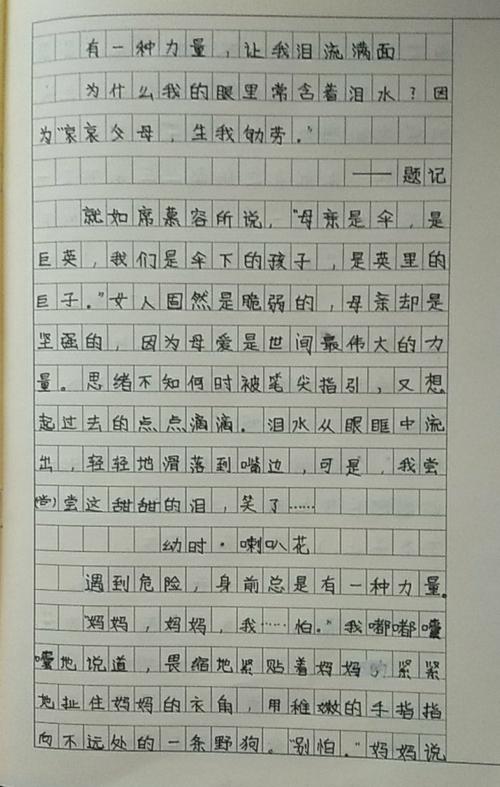 有一种力量，让我泪流满面
为什么我的眼里常含着泪水？因
为“哀哀父母，生我劬劳。”
——题记
就如席慕容所说，“母亲是伞，是
巨英，我们是伞下的孩子，是英里的
巨子。”女人固然是脆弱的，母亲却是
坚强的，因为母爱是世间最伟大的力
量。思绪不知何时被笔尖指引，又想
起过去的点点滴滴。泪水从眼眶中流
出，轻轻地滑落到嘴边，可是，我尝
尝这甜甜的泪，笑了……
幼时·喇叭花
遇到危险，身前总是有一种力量。
“妈妈，妈妈，我……怕。”我嘟嘟囔
囔地说道，畏缩地紧贴着妈妈的紧紧
地扯住妈妈的衣角，用稚嫩的手指指
向不远处的一条野狗。“别怕。”妈妈说